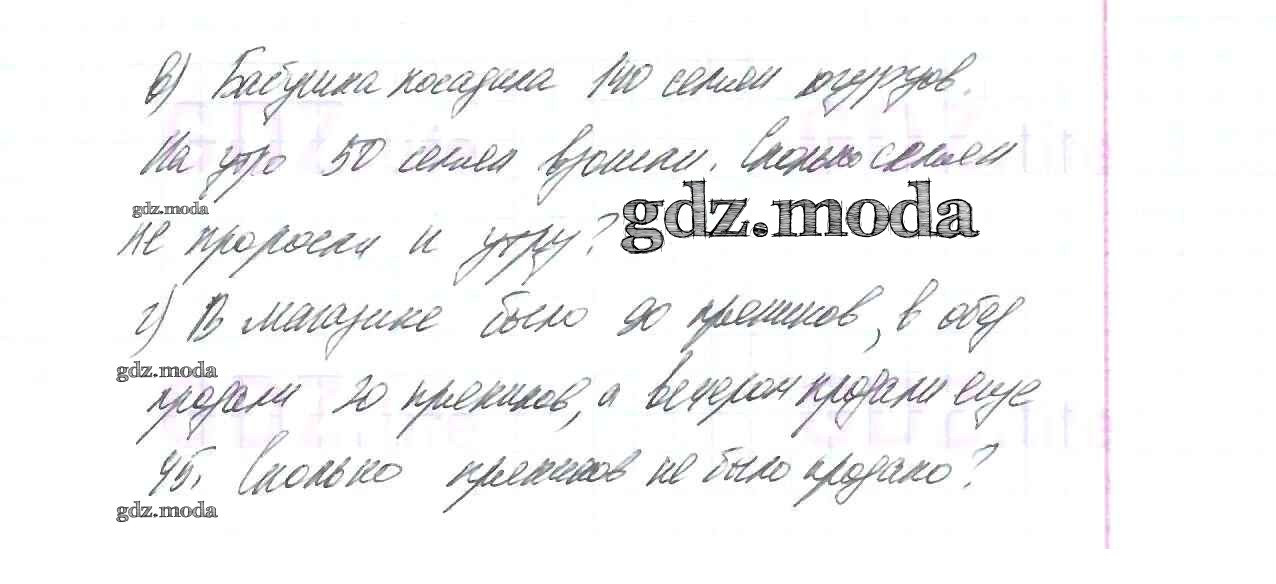 в) Бабушка посадила 140 семян огурцов.
На утро 50 семян взошли. Сколько семян
gdz.moda
gdz.moda
не проросли к утру?
г) В магазине было 90 пряников, в обед
gdz.moda
продали 20 пряников, а вечером продали еще
45. Сколько пряников не было продано?
gdz.moda